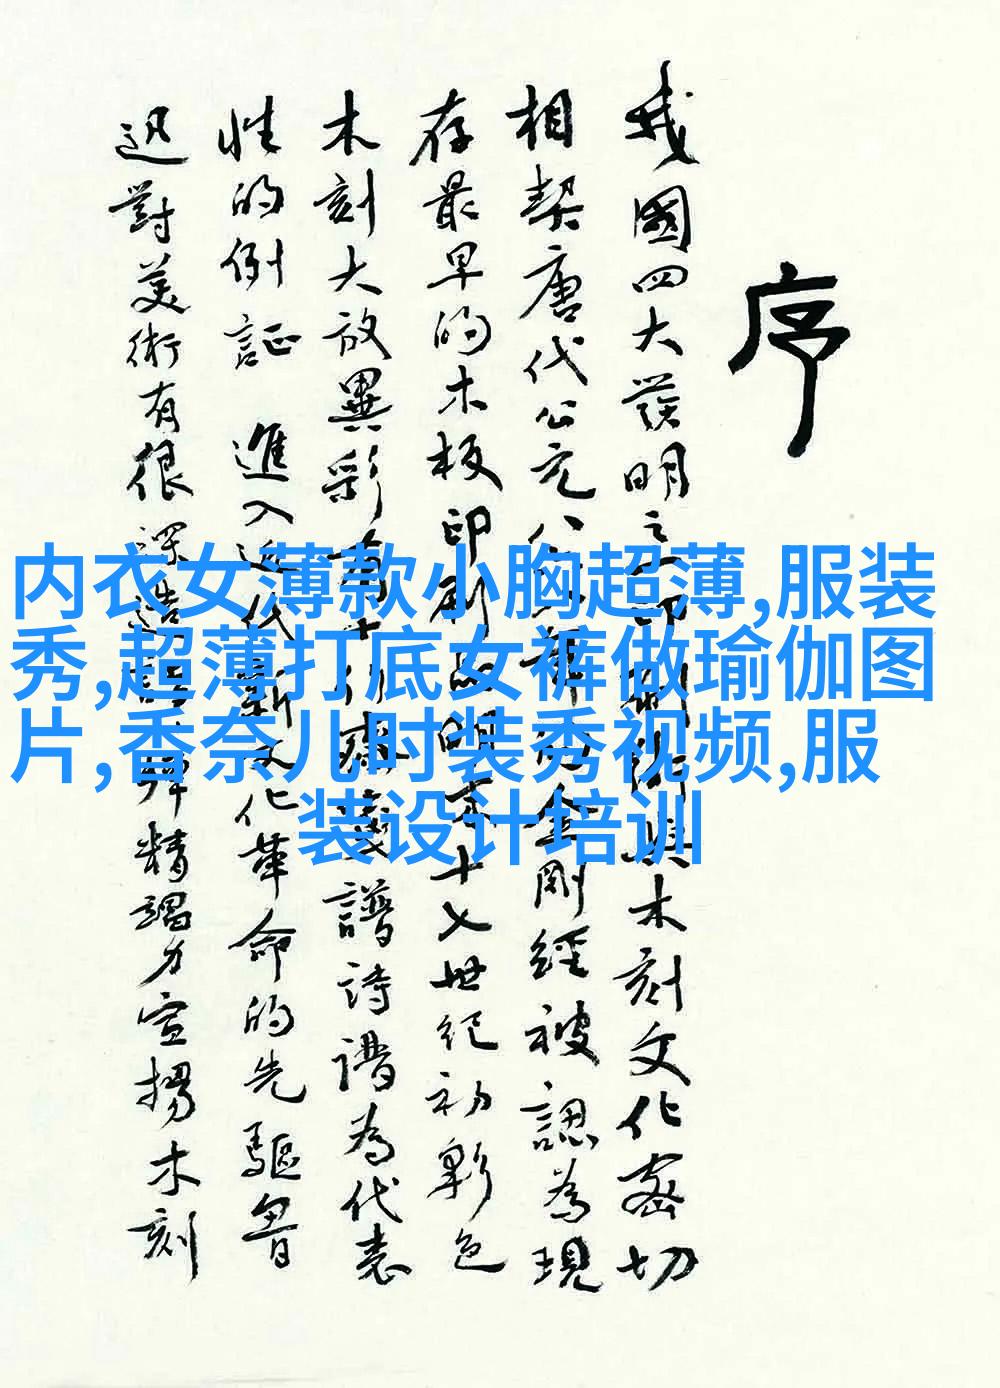 序
我國四大發明之印刷術與木刻文化密切
相契唐代公元八年金剛經被認為現
存最早的木板印刷品明末十七世紀初彩色
木刻大放異彩有十竹齋箋譜詩譜為代表
性的例証 進入近代新文化革命的先驅魯
迅對美術有很深造詣精竭力宣揚木刻
内衣女薄款小胸超薄,服装
秀,超薄打底女裤做瑜伽图
片,香奈儿时装秀视频,服
装设计培训